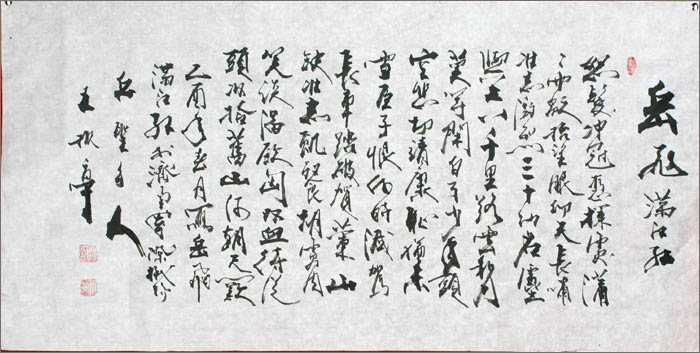 岳飛滿江紅
怒髮冲冠憑欄處瀟
〻雨歇抬望眼仰天長嘯
壯志激烈三十功名塵
與土八千里路雲和月
莫等閑白了少年頭
空悲切靖康恥猶未
雪臣子恨何時滅駕
長車踏破賀蘭山
缺壯志飢餐胡虜肉
笑談渴飲匈奴血待從
頭收拾舊山河朝天闕
乙酉年春月寫岳飛
滿江紅於濟南